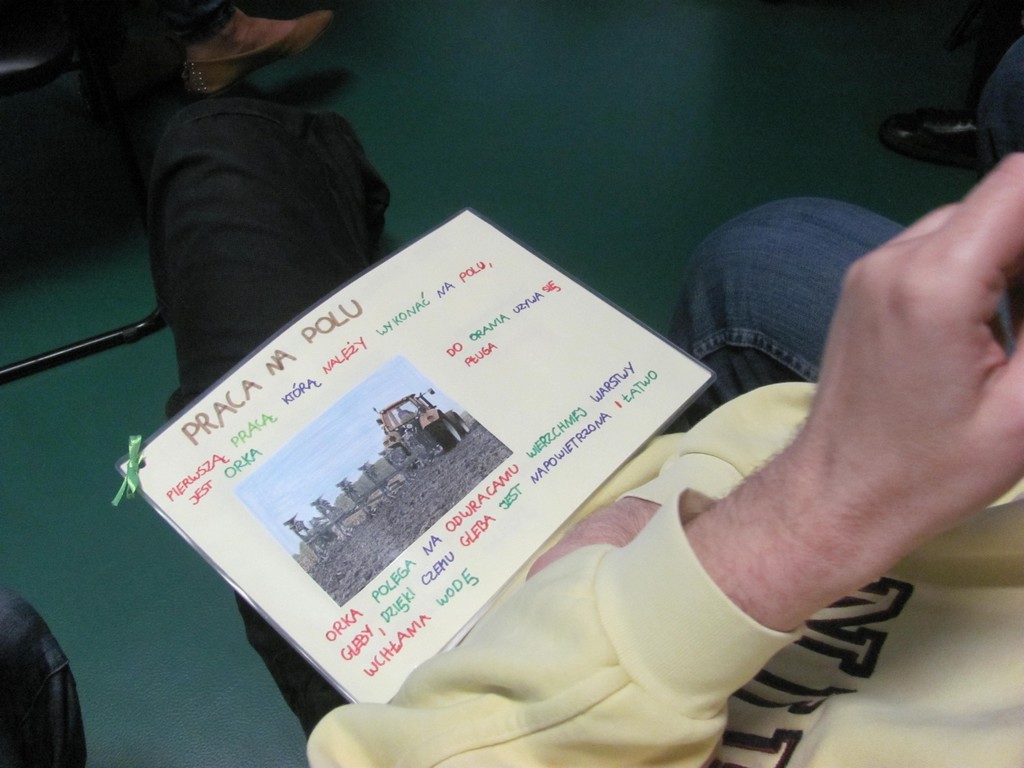 PRACA NA POLU
PIERWSZĄ PRACĄ KTÓRĄ NALEŻY WYKONAĆ NA POLU,
JEST ORKA
DO ORANIA UŻYWA SIĘ
PŁUGA
ORKA POLEGA NA ODWRACAMU WIERZCHMIEJ WARSTWY
GLEBY, DZIĘKI CZEMU GLEBA JEST NAPOWIETRZONA I ŁATWO
WCHŁAMIA WODĘ